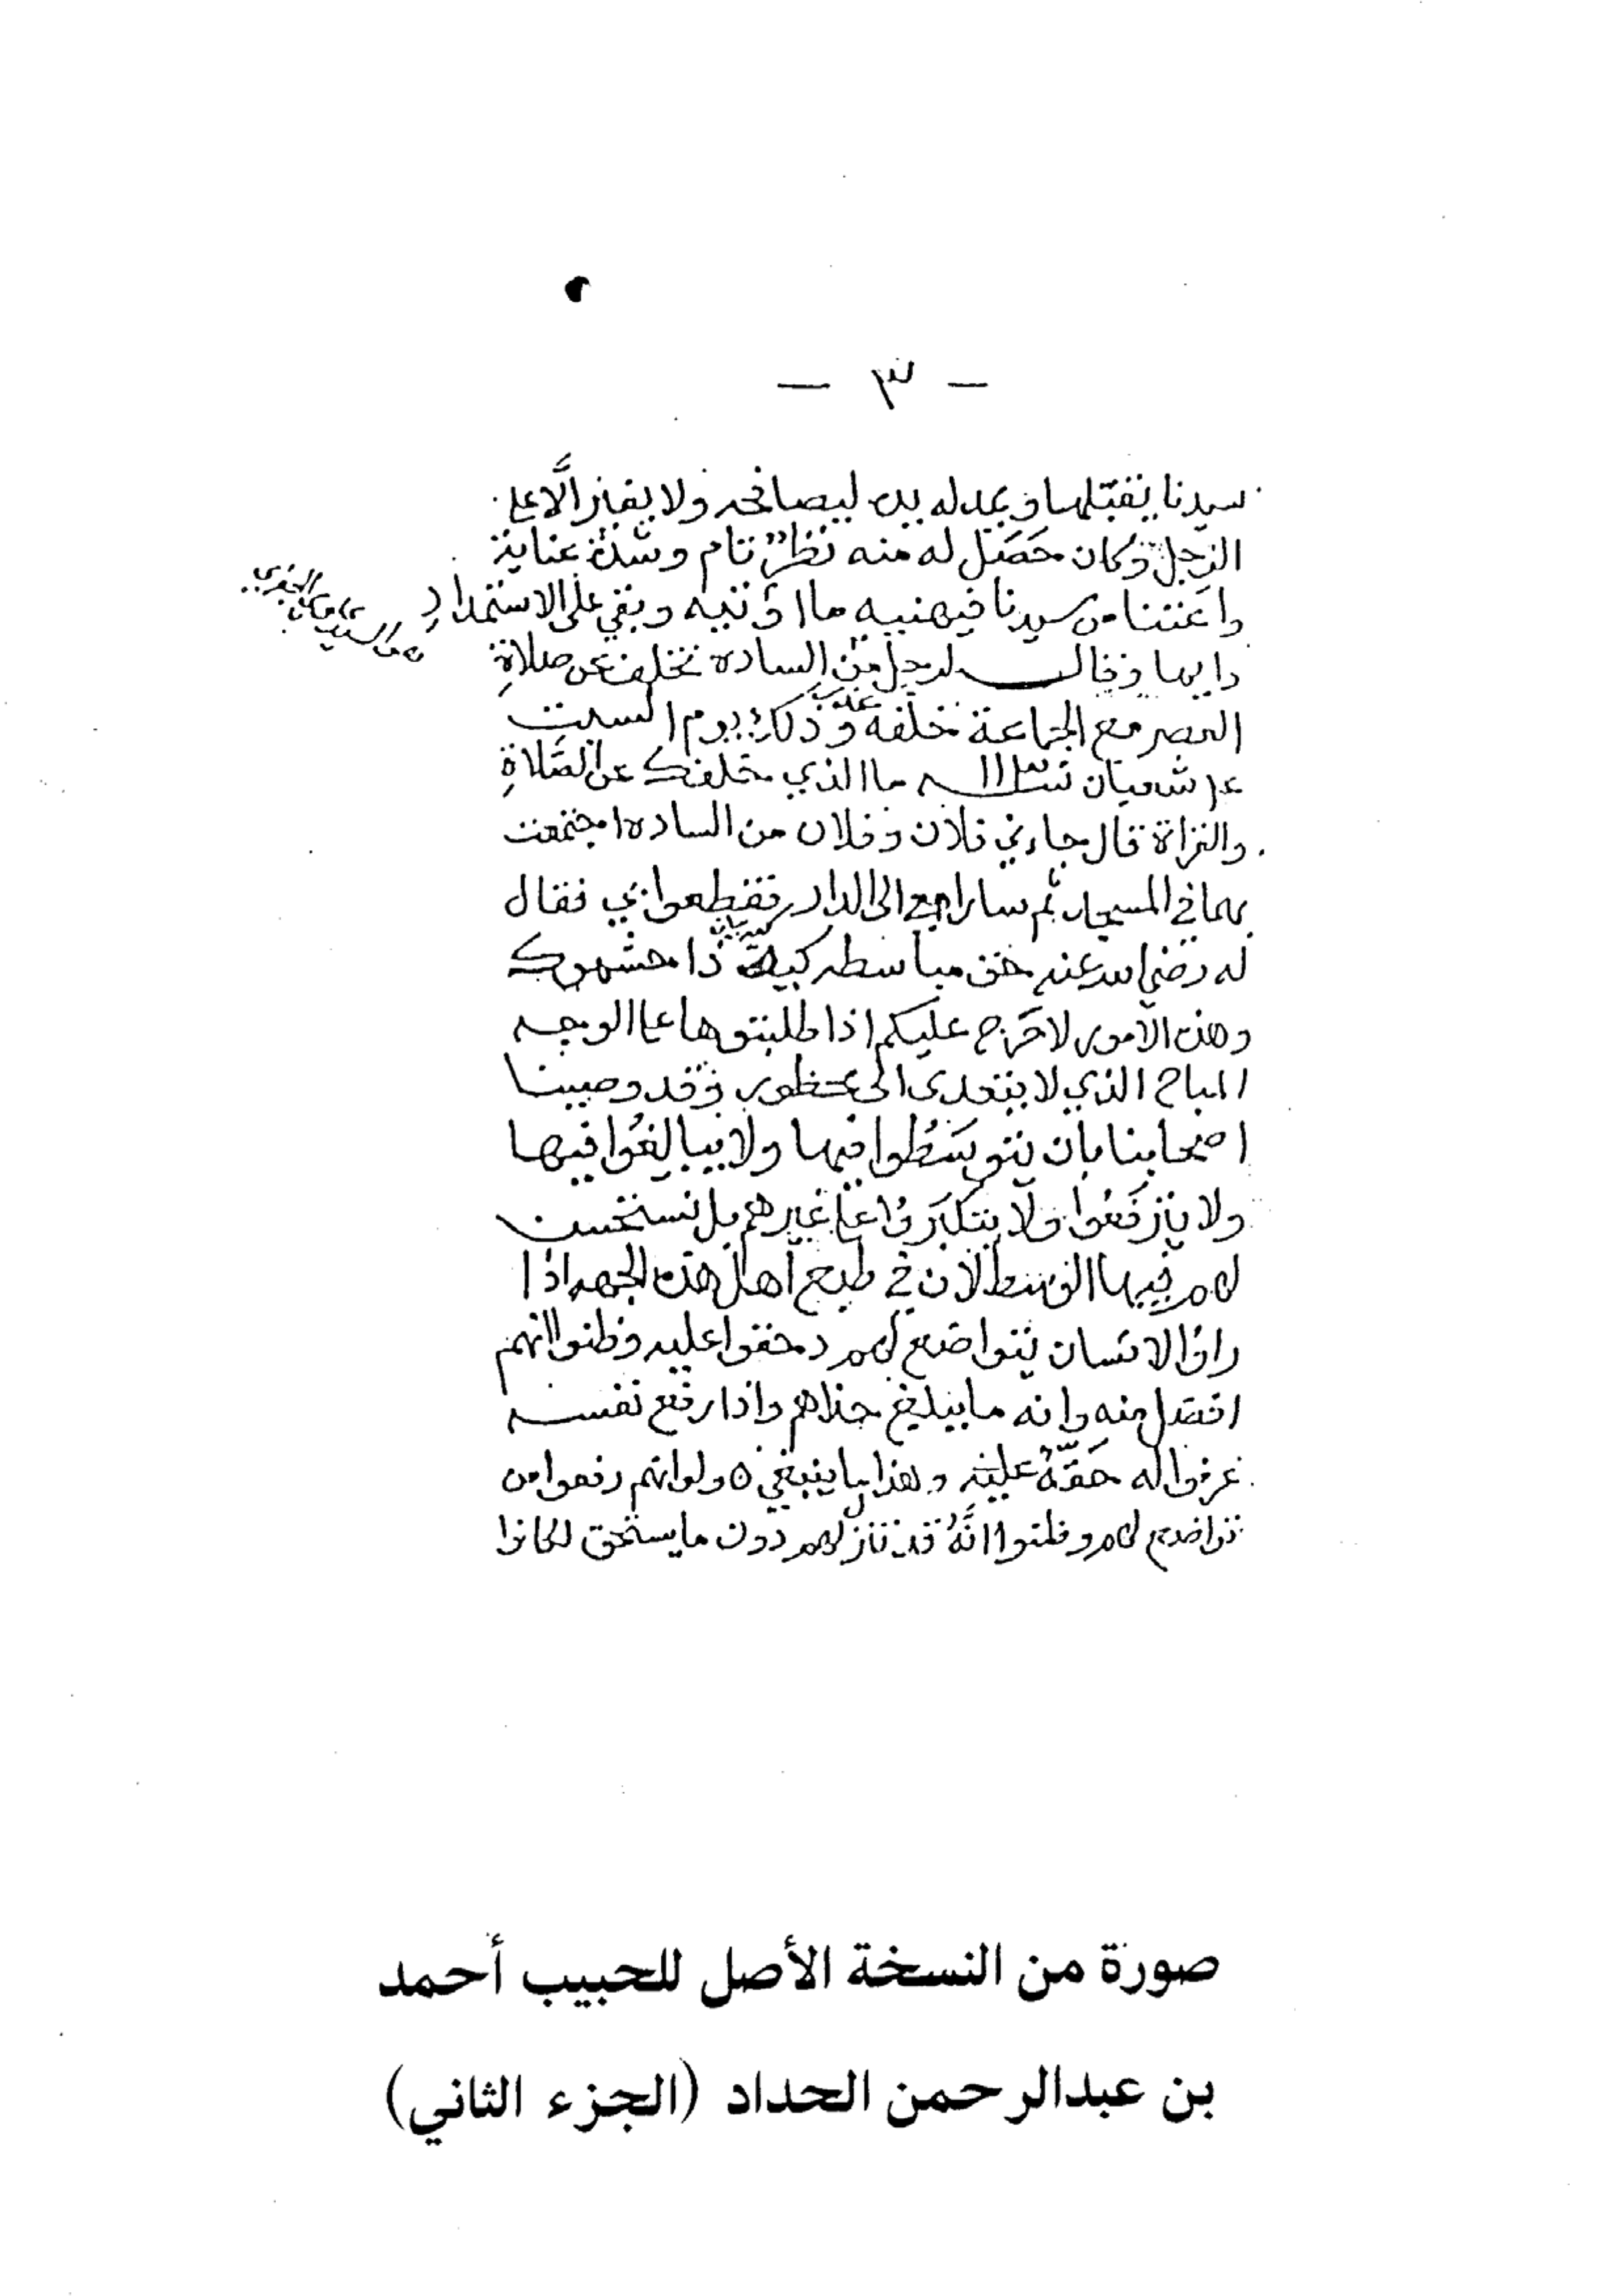 - ٣ -
سيدنا يقبلها ويمد له يده ليصافحه ولا يفاز الا على
الرجل وكان حَصَل له منه نظرٌ تام وشدة عناية
واعتنا من سيدنا فيهنيه ما اوتيه وبقي على الاستمداد
دايما وقال لرجل من السادة تخلف عن صلاة
العصر مع الجماعة خلفه وذلك يوم السبت
شعبان ما الذي خلفك عن الصَّلاةِ
والقراة قال جاءني فلان وفلان من السادة اجتمعت
بهما في المسجد ثم سارا معي الى الدار فقطعوا بي فقال
له رضي الله عنه حق مباسطه كبيرة ذا حشموك
وهذه الامور لا حَرَج عليكم اذا طلبتوها على الوجه
المباح الذي لا يتعدى الى محظور وقد وصينا
اصحابنا بان يتوسَّطُوا فيها ولا يبالغُوا فيها
ولا يترفَّعُوا ولا يتكبَّروا على غيرهم بل نستحسن
لهم فيها التوسط لان في طبع اهل هذه الجهه اذا
راوا الانسان يتواضع لهم دحقوا عليه وظنوا انهم
افضل منه وانه ما يبلغ حذاهم واذا رفع نفسه
عرفوا له حَقَّهُ عليه وهذا ما ينبغي ٥ ولو انهم رفعوا من
تواضع لهم وظنوا انَّهُ قد تنزل لهم دون ما يستحق لكانوا
صورة من النسخة الأصل للحبيب أحمد
بن عبدالرحمن الحداد (الجزء الثاني)